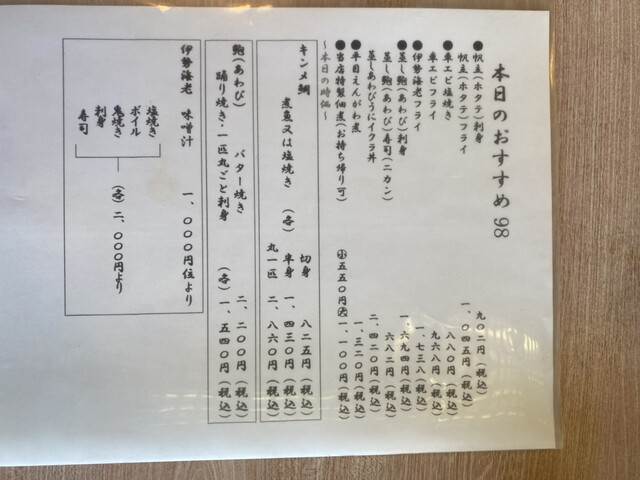 本日のおすすめ98
●帆立(ホタテ)刺身 九〇二円(税込)
帆立(ホタテ)フライ 一、〇四五円(税込)
●車エビ塩焼き 八八〇円(税込)
車エビフライ 九六八円(税込)
●伊勢海老フライ 一、七三八(税込)
●蒸し鮑(あわび)刺身 一、六九四円(税込)
蒸し鮑(あわび)寿司(二カン) 六八二円(税込)
蒸しあわびうにイクラ丼 二、四二〇円(税込)
●平目えんがわ煮 一、三二〇円(税込)
●当店特製佃煮(お持ち帰り可) ㊙小五五〇円大一、一〇〇円(税込)
~本日の時価~
キンメ鯛 切身 八二五円(税込)
煮魚又は塩焼き (各) 半身 一、四三〇円(税込)
丸一匹 二、八六〇円(税込)
鮑(あわび) バター焼き 二、二〇〇円(税込)
踊り焼き・一匹丸ごと刺身 (各) 一、五四〇円(税込)
伊勢海老 味噌汁 一、〇〇〇円位より
塩焼き
ボイル
鬼焼き (各) 二、〇〇〇円より
刺身
寿司